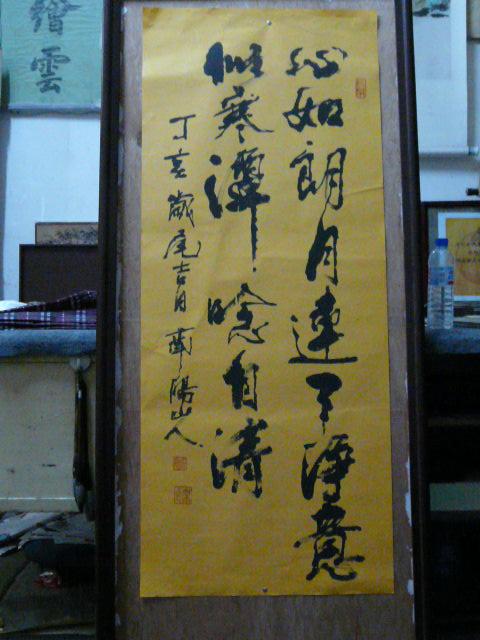 心如朗月連天淨意
似寒潭唸自清
丁亥歲尾吉日南陽山人
繪雲